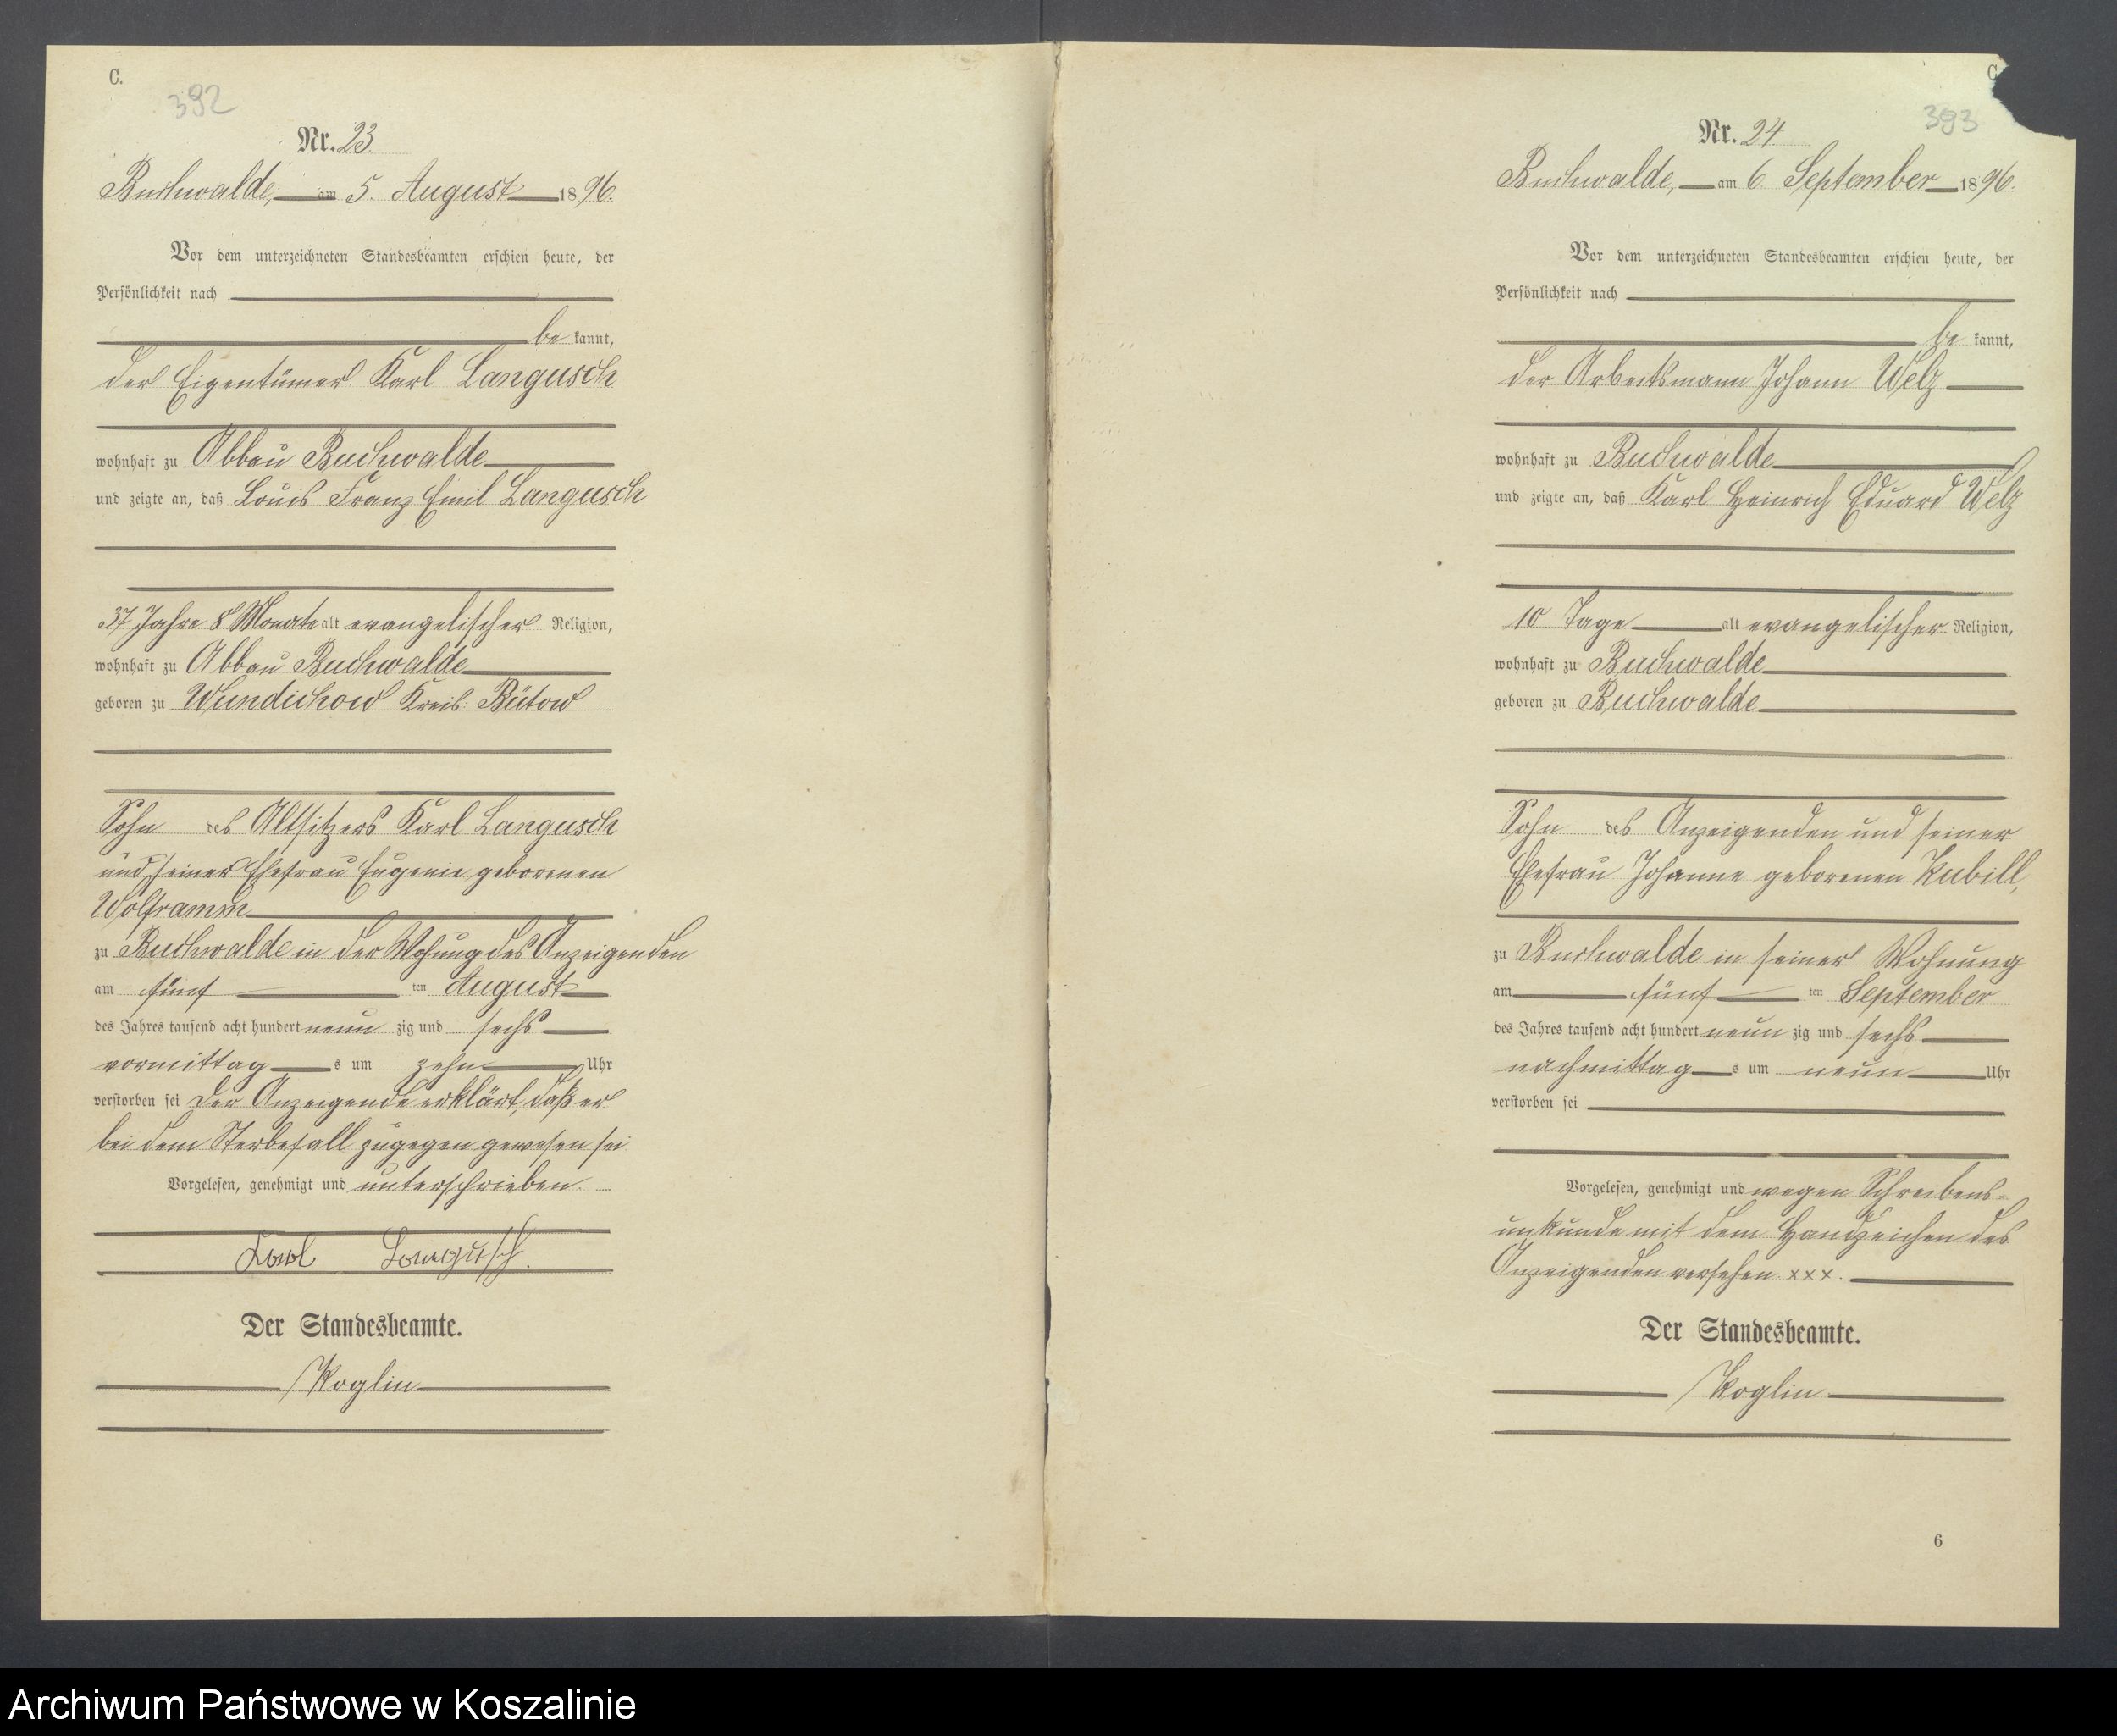 C.
392
Nr. 23
Buchwalde, am 5. August 1896.
Vor dem unterzeichneten Standesbeamten erschien heute, der
Persönlichkeit nach
be kannt,
der Eigentümer Karl Langusch
wohnhaft zu Abbau Buchwalde
und zeigte an, daß Louis Franz Emil Langusch
37 Jahre 8 Monate alt evangelischer Religion,
wohnhaft zu Abbau Buchwalde
geboren zu Wundichow Kreis Bütow
Sohn des Altsitzers Karl Langusch
und seiner Ehefrau Eugenie geborenen
Wolframm
zu Buchwalde in der Wohung des Anzeigenden
am fünf ten August
des Jahres tausend acht hundert neun zig und sechs
vormittag s um zehn Uhr
verstorben sei Der Anzeigende erklärt, daß er
bei dem Sterbefall zugegen gewesen sei
Vorgelesen, genehmigt und unterschrieben.
Karl Langusch.
Der Standesbeamte.
Koglin
C
393
Nr. 24
Buchwalde, am 6 September 1896.
Vor dem unterzeichneten Standesbeamten erschien heute, der
Persönlichkeit nach
be kannt,
der Arbeitsmann Johann Welz
wohnhaft zu Buchwalde
und zeigte an, daß Karl Heinrich Eduard Welz
10 Tage alt evangelischer Religion,
wohnhaft zu Buchwalde
geboren zu Buchwalde
Sohn des Anzeigenden und seiner
Ehefrau Johanne geborenen Kubill,
zu Buchwalde in seiner Wohnung
am fünf ten September
des Jahres tausend acht hundert neun zig und sechs
nachmittag s um neun Uhr
verstorben sei
Vorgelesen, genehmigt und wegen Schreibens
unkunde mit dem Handzeichen des
Anzeigenden versehen xxx.
Der Standesbeamte.
Koglin
6
Archiwum Państwowe w Koszalinie